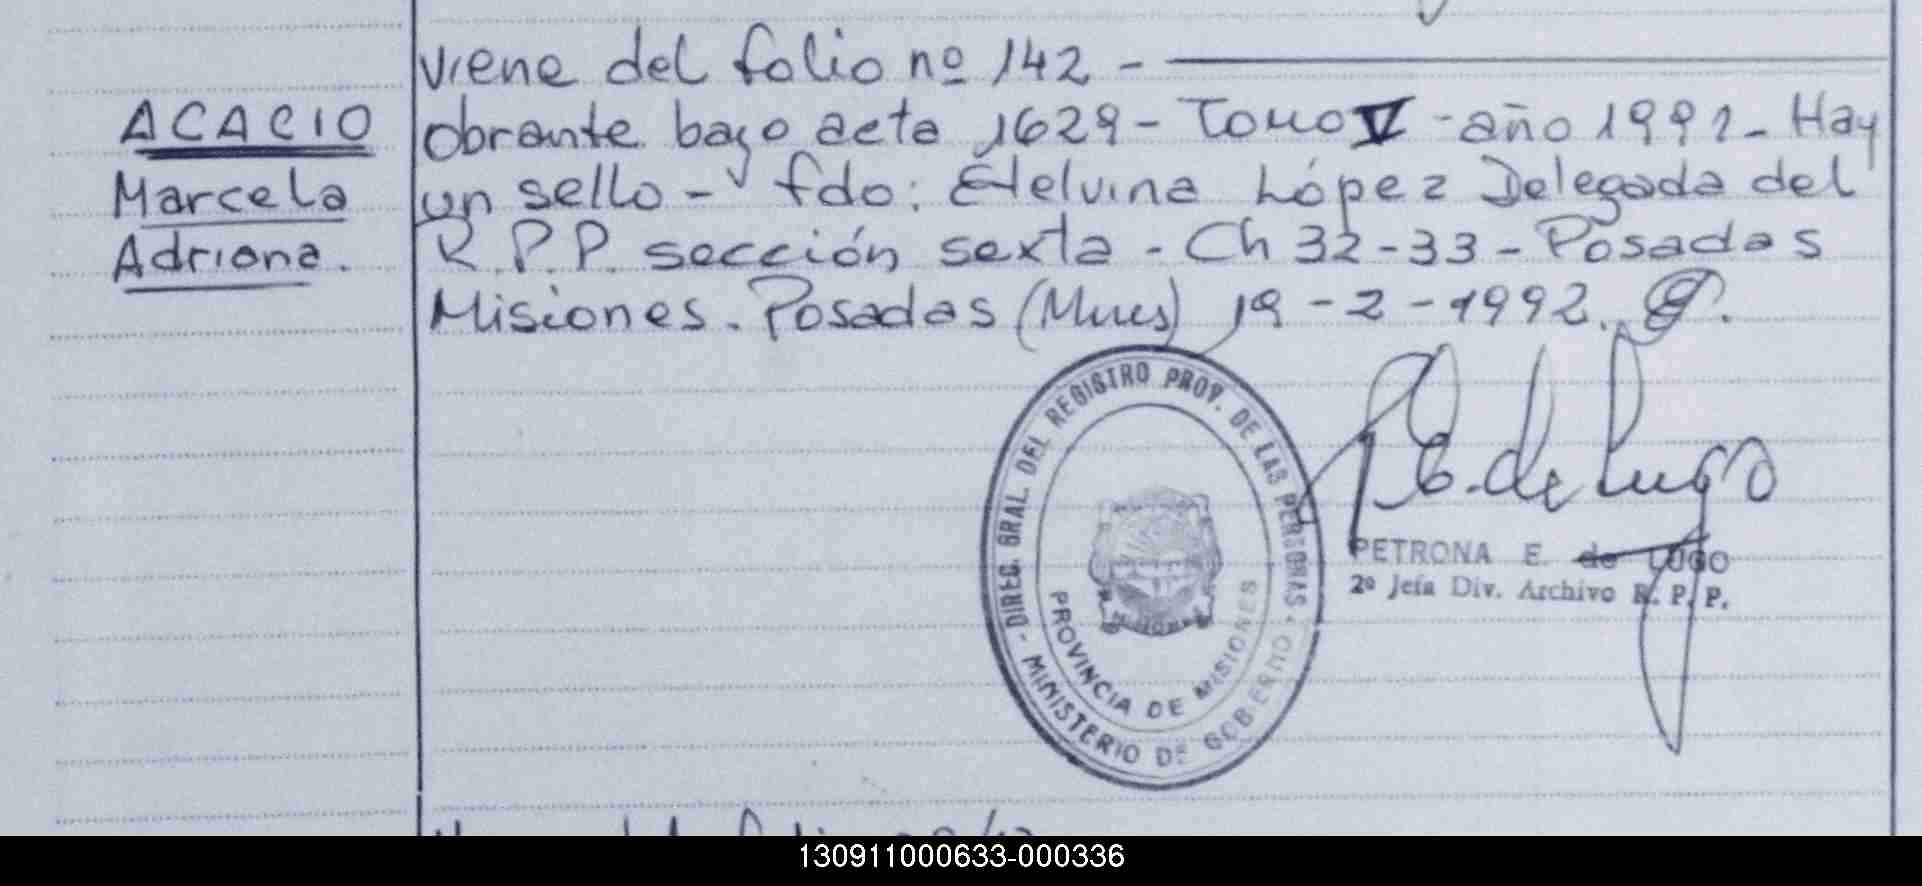 viene del folio nº 142 -
ACACIO
Marcela
Adriana.
obrante bajo acta 1629 - Tomo V - año 1991 - Hay
un sello - fdo: Etelvina López Delegada del
R.P.P. sección sexta - Ch 32-33 - Posadas
Misiones. Posadas (Mnes) 19-2-1992.
DIREC. GRAL. DEL REGISTRO PROV. DE LAS PERSONAS
MINISTERIO DE GOBIERNO
PROVINCIA DE MISIONES
P. E. de Lugo
PETRONA E. de LUGO
2º Jefa Div. Archivo R. P. P.
130911000633-000336